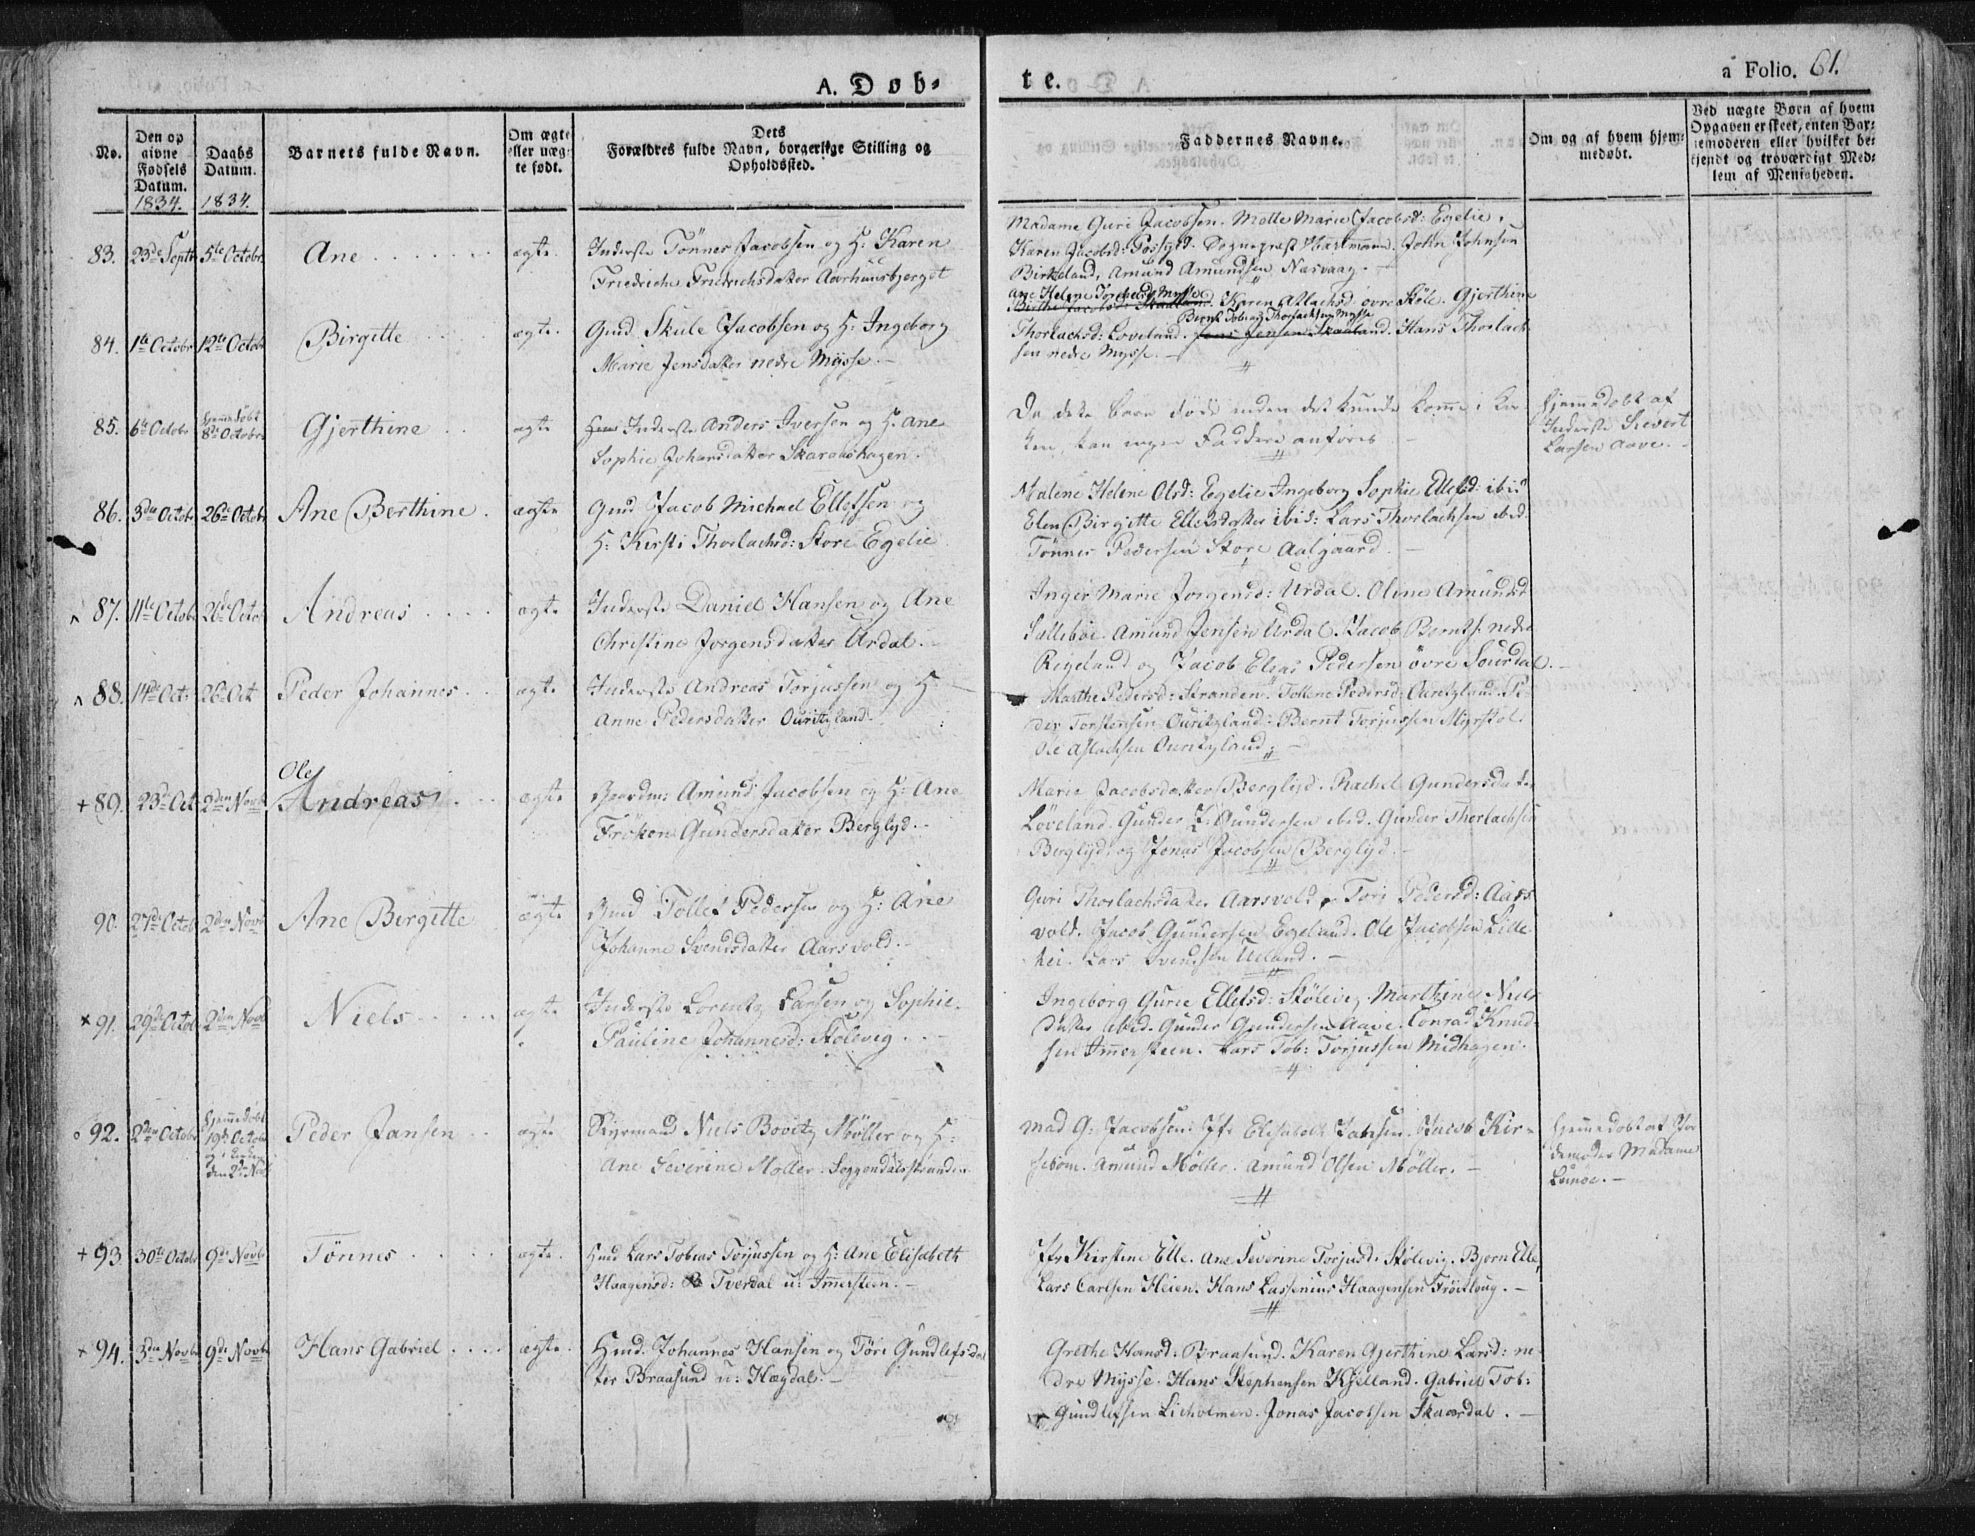 A. Døb-
te.
a Folio. 61.
No.
Den op
givne
Fødsels
Datum.
1834.
Daabs
Datum.
1834.
Barnets fulde Navn.
Om ægte
eller uæg-
te født.
Dets
Forældres fulde Navn, borgerlige Stilling og
Opholdssted.
Faddernes Navne.
Om og af hvem hjem-
medøbt.
Ved uægte Børn af hvem
Opgaven er skeet, enten Bar-
nemoderen eller hvilket be-
kjendt og troværdigt Med-
lem af Menigheden.
83. 23de Septb 5te Octobr Ane ægte
Inderste Tönnes Jacobsen og H: Karen
Friedriche Friedrichsdatter Aarhuusbjerget
Madame Guri Jacobsen. Molle Marie Jacobsd: Egelie.
Karen Jacobsd: Sogneprest Hartmann. John Johnsen
Birkeland, Amund Amundsen Næsvaag.
84. 1te Octobr 12te Octobr Birgitte ægte
Gmd. Skule Jacobsen og H: Ingeborg
Marie Jensdatter nedre Mysse.
Ane Helene Torkelsd: Mysse
Berthe Jacobsd: Skaaland. Karen Aslachsd: övre Støle. Gjerthine
Bernt Tobias Thorlachsen Mysse
Thorlachsd: Løveland. Jens Jensen Skaaland. Hans Thorlach-
sen nedre Mysse.
85. 6te Octobr Hjemmedøbt 8de Octobr Gjerthine ægte
Inderste Anders Iversen og H: Ane
Sophie Johansdatter Skaraashagen.
Da dette barn døde inden det kunde komme i Kir-
ken, kan ingen Faddere anføres
Hjemmedøbt af
Inderste Sievert
Larsen Aave.
86. 3die Octobr 26de Octobr Ane Berthine ægte
Gmd Jacob Michael Ellefsen og
H: Kirsti Thorlachsd: Store Egelie.
Malene Helene Olsd: Egelie Ingeborg Sophie Ellefsd: ibid
Elen Birgitte Ellefsdatter ibid: Lars Thorlachsen ibid.
Tönnes Pedersen Store Aalgaard.
87. 11te Octobr 26de Octobr Andreas ægte
Inderste Daniel Hansen og Ane
Christine Jorgensdatter Urdal.
Inger Marie Jorgensd: Urdal. Oline Amundsd
Sælleboe. Amund Jensen Urdal. Jacob Berntsen nedre
Rigeland og Jacob Elias Pedersen övre Sourdal.
88. 14de Oct: 26de Oct Peder Johannes ægte
Inderste Andreas Torjussen og H:
Anne Pedersdatter Ouritzland.
Marthe Pedersd: Stranden. Tollene Pedersd: Ouritzland. Pe-
der Torstensen Ouritzland. Bernt Torjussen Myrstol.
Ole Aslachsen Ouritzland.
89. 23de Oct 2den Novb Ole Andreas ægte
Gaardm: Amund Jacobsen og H: Ane
Fröken Gundersdatter Berglyd.
Marie Jacobsdatter Berglyd. Rachel Gundersdatter
Löveland. Gunder J: Gundersen ibid. Gunder Thorlachsen
Berglyd, og Jonas Jacobsen Berglyd.
90. 27de Octob 2den Novb Ane Bergitte ægte
Gmd Tollef Pedersen og H: Ane
Johanne Svendsdatter Aarsvold.
Guri Thorlachsdatter Aarsvold. Tori Pedersd: Aars-
vold. Jacob Gundersen Egeland. Ole Jacobsen Lille
hei. Lars Svendsen Ueland.
91. 29de Octob 2den Novb Niels ægte
Inderste Lorentz Larsen og Sophie
Pauline Johannesd: Stölevig.
Ingeborg Gurie Ellefsd: Stölevig. Marthine Niels-
datter ibid. Gunder Gundersen Aave. Conrad Knud-
sen Immersteen. Lars Tob: Torjussen Midhagen.
92. 2den Octobr Hjemmedøbt 19de Octobr og i Kirken den 2den Novb Peder Jansen ægte
Styrmand Niels Bovitz Möller og H:
Ane Severine Moller. Soggendalsstrand.
Mad G: Jacobsen. Jfr Elisabeth Jansen. Jacob Kir-
sebom. Amund Møller. Amund Olsen Möller.
Hjemmedøbt af Jor-
demoder Madame
Lunöe.
93. 30te Octobr 9de Novb Tönnes ægte.
Hmd Lars Tobias Torjussen og H: Ane Elisabeth
Haagensd: Tverdal u: Immersteen.
Jfr Kirstine Elle. Ane Severine Torjusd. Stölevig. Bjorn Elle
Lars Carlsen Heien. Hans Lassenius Haagensen Fröitloug.
94. 3die Novbr 9de Novbr Hans Gabriel ægte.
Hmd. Johannes Hansen og Töri Gundlefsdat-
ter Braasund u: Hægdal.
Grethe Hansd: Braasund. Karen Gjerthine Larsd: ne-
dre Mysse. Hans Stephensen Kjelland. Gabriel Tob:
Gundlefsen Lieholmen. Jonas Jacobsen Skaardal.